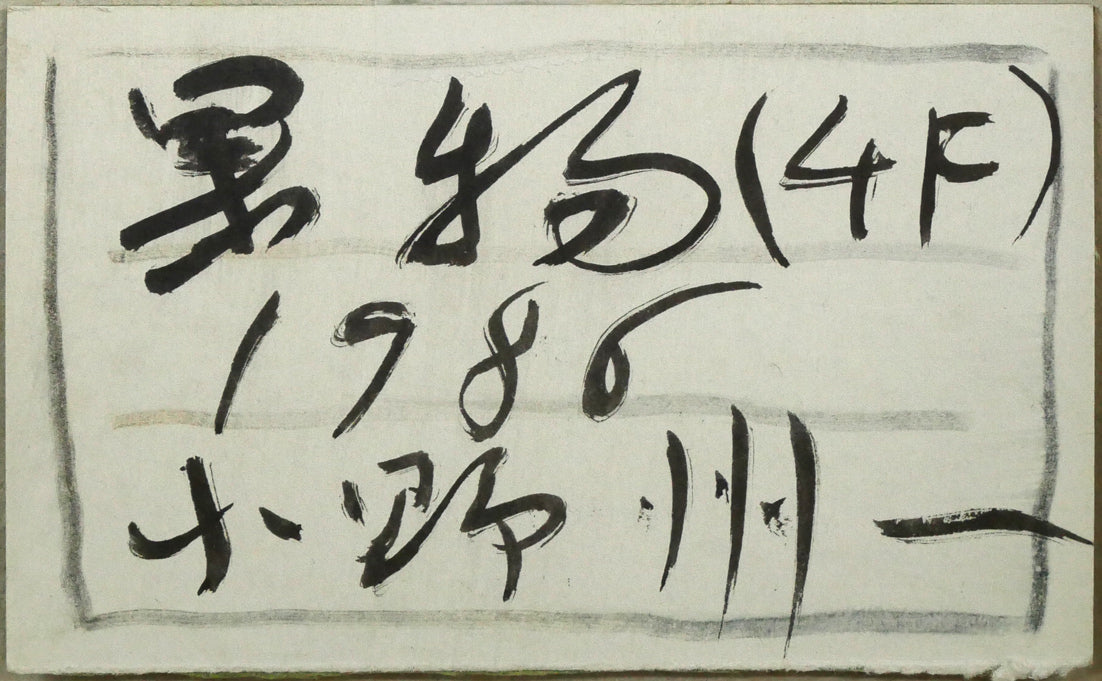 果物(4F)
1986
小野州一